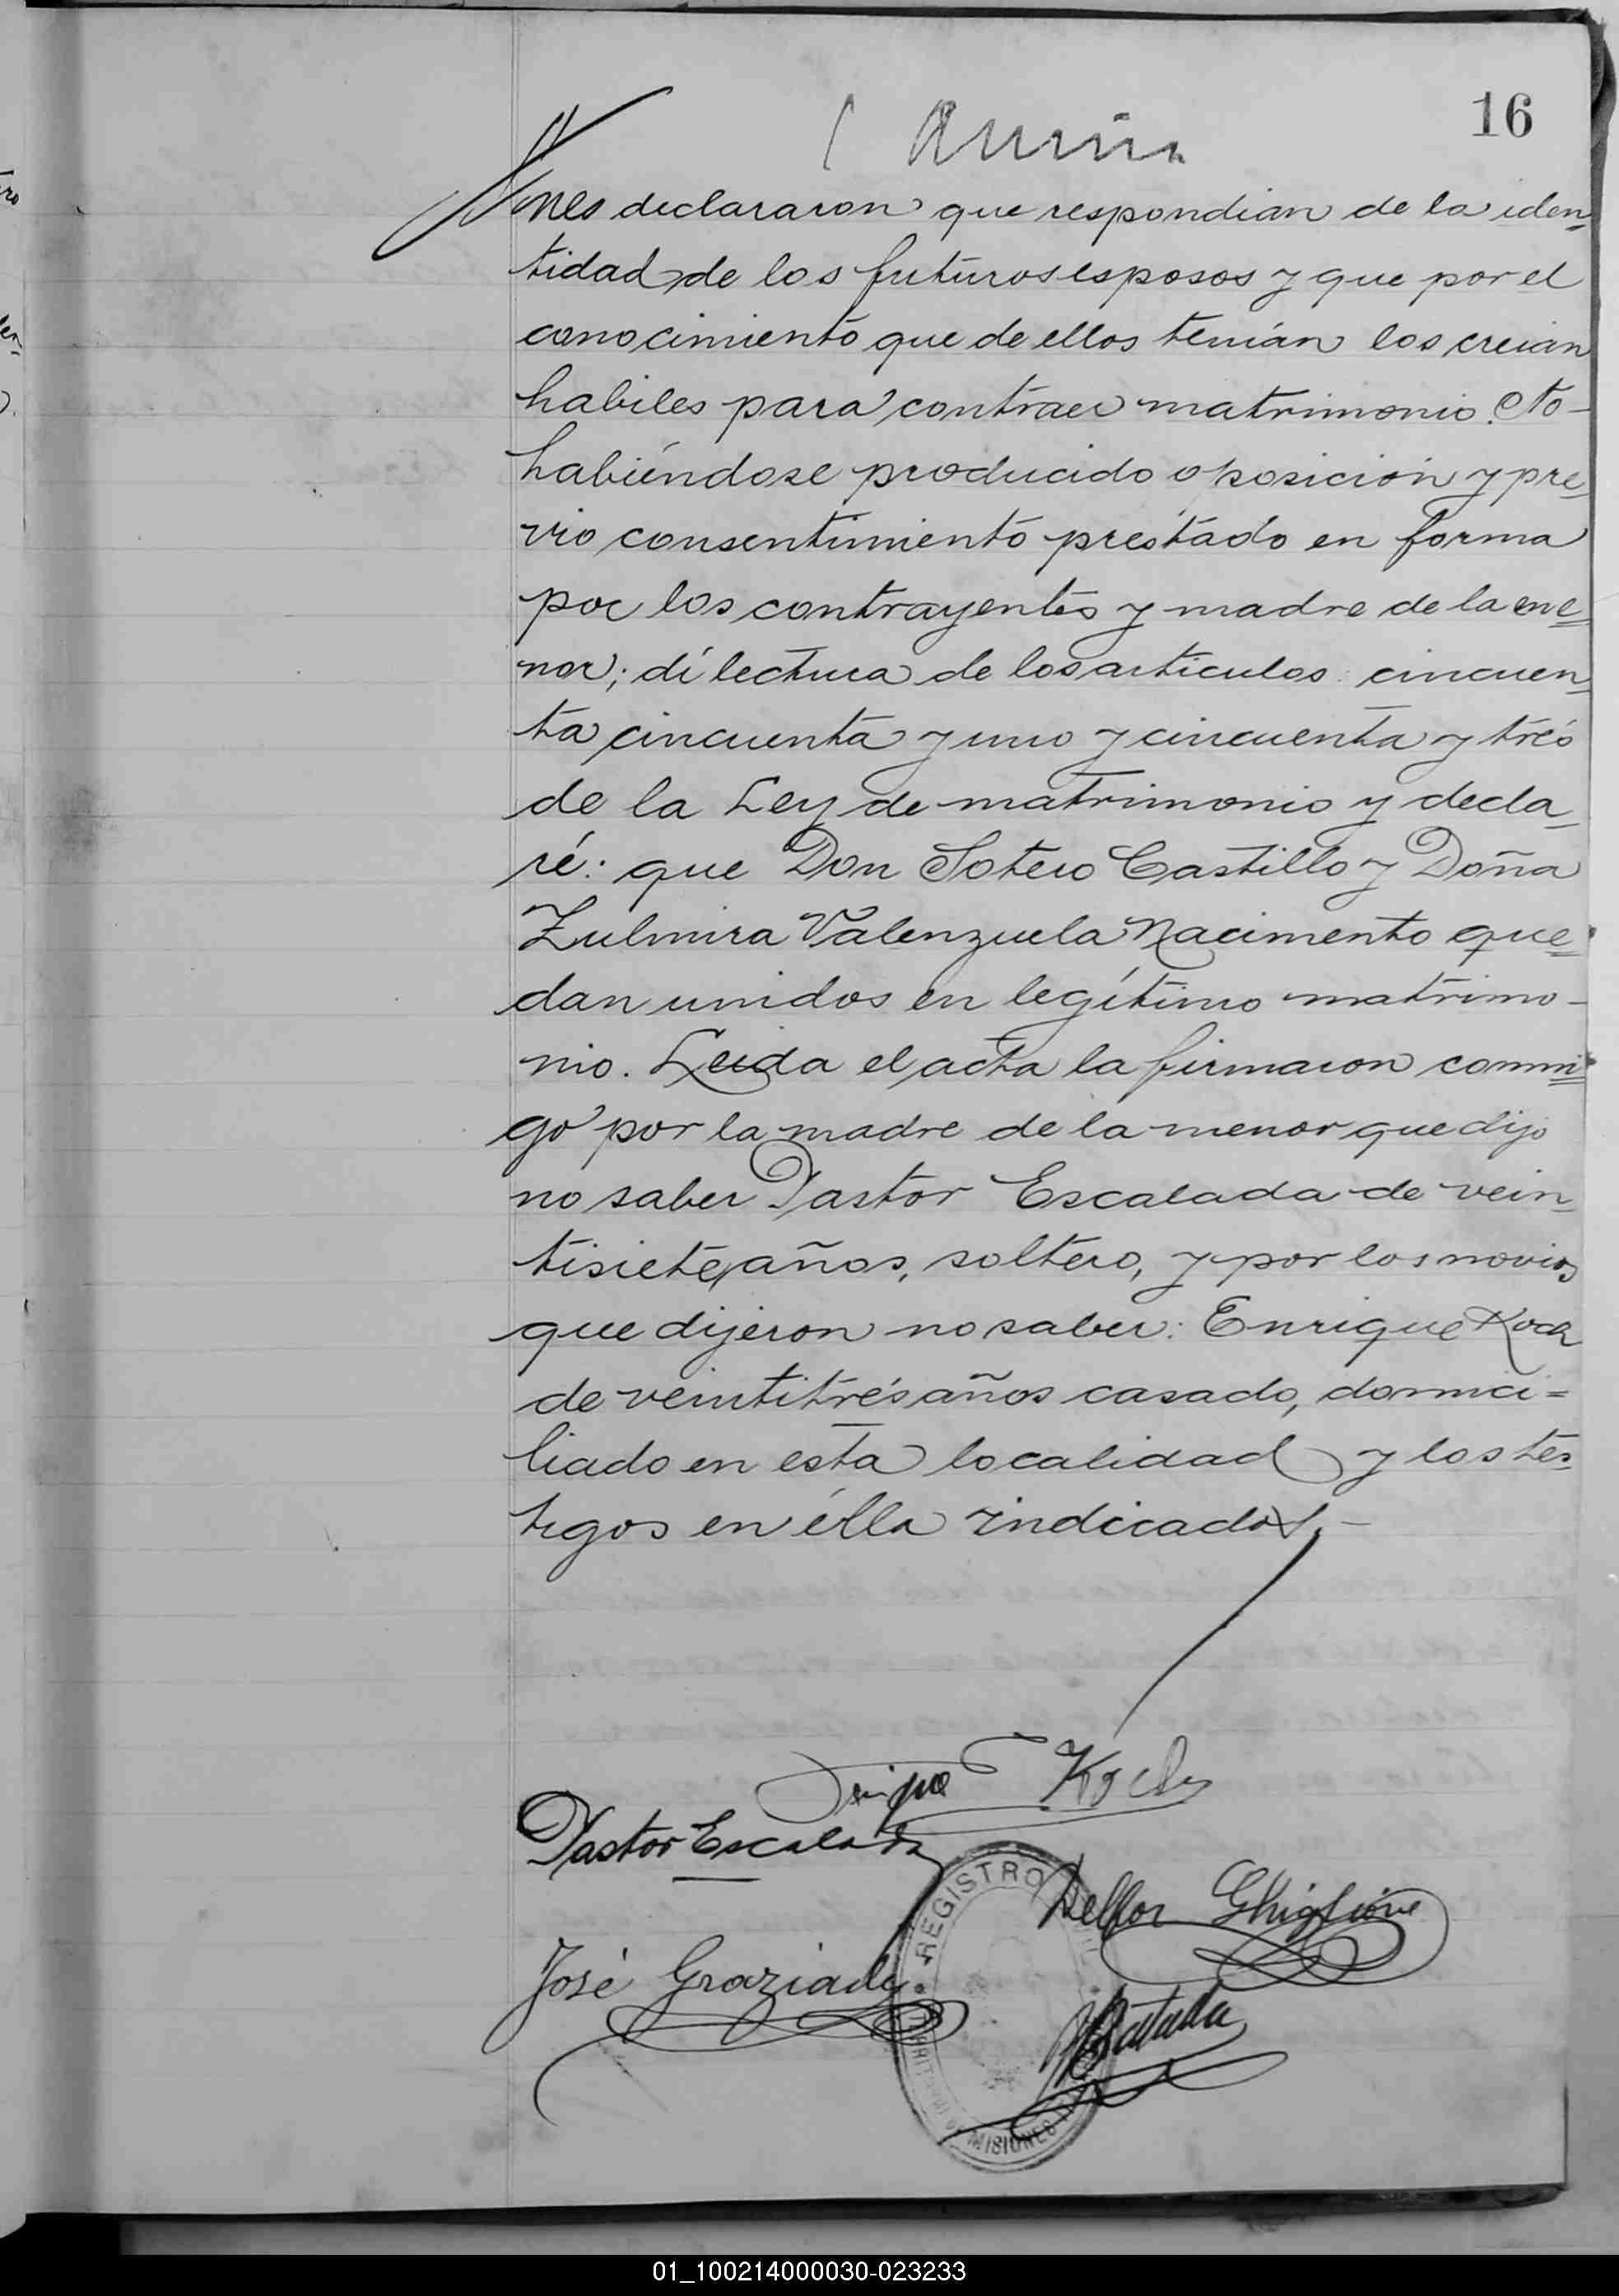 16
nes declararon que respondian de la iden-
tidad de los futuros esposos y que por el
conocimiento que de ellos tenían los creian
habiles para contraer matrimonio. No
habiéndose producido oposición y pre-
vio consentimiento prestado en forma
por los contrayentes y madre de la me-
nor; dí lectura de los articulos: cincuen-
ta cincuenta y uno y cincuenta y tres
de la Ley de matrimonio y decla-
ré: que Don Sotero Castillo y Doña
Zulmira Valenzuela Nacimento que-
dan unidos en legítimo matrimo-
nio. Leida el acta la firmaron conmi-
go por la madre de la menor que dijo
no saber Pastor Escalada de vein-
tisiete años, soltero, y por los novios
que dijeron no saber: Enrique Koch
de veintitrés años casado, domici=
liado en esta localidad y los tes-
tigos en élla indicados.-
Koch
Pastor Escalada
REGISTRO
Delfor Ghiglione
José Graziady
MISIONES
01_100214000030-023233